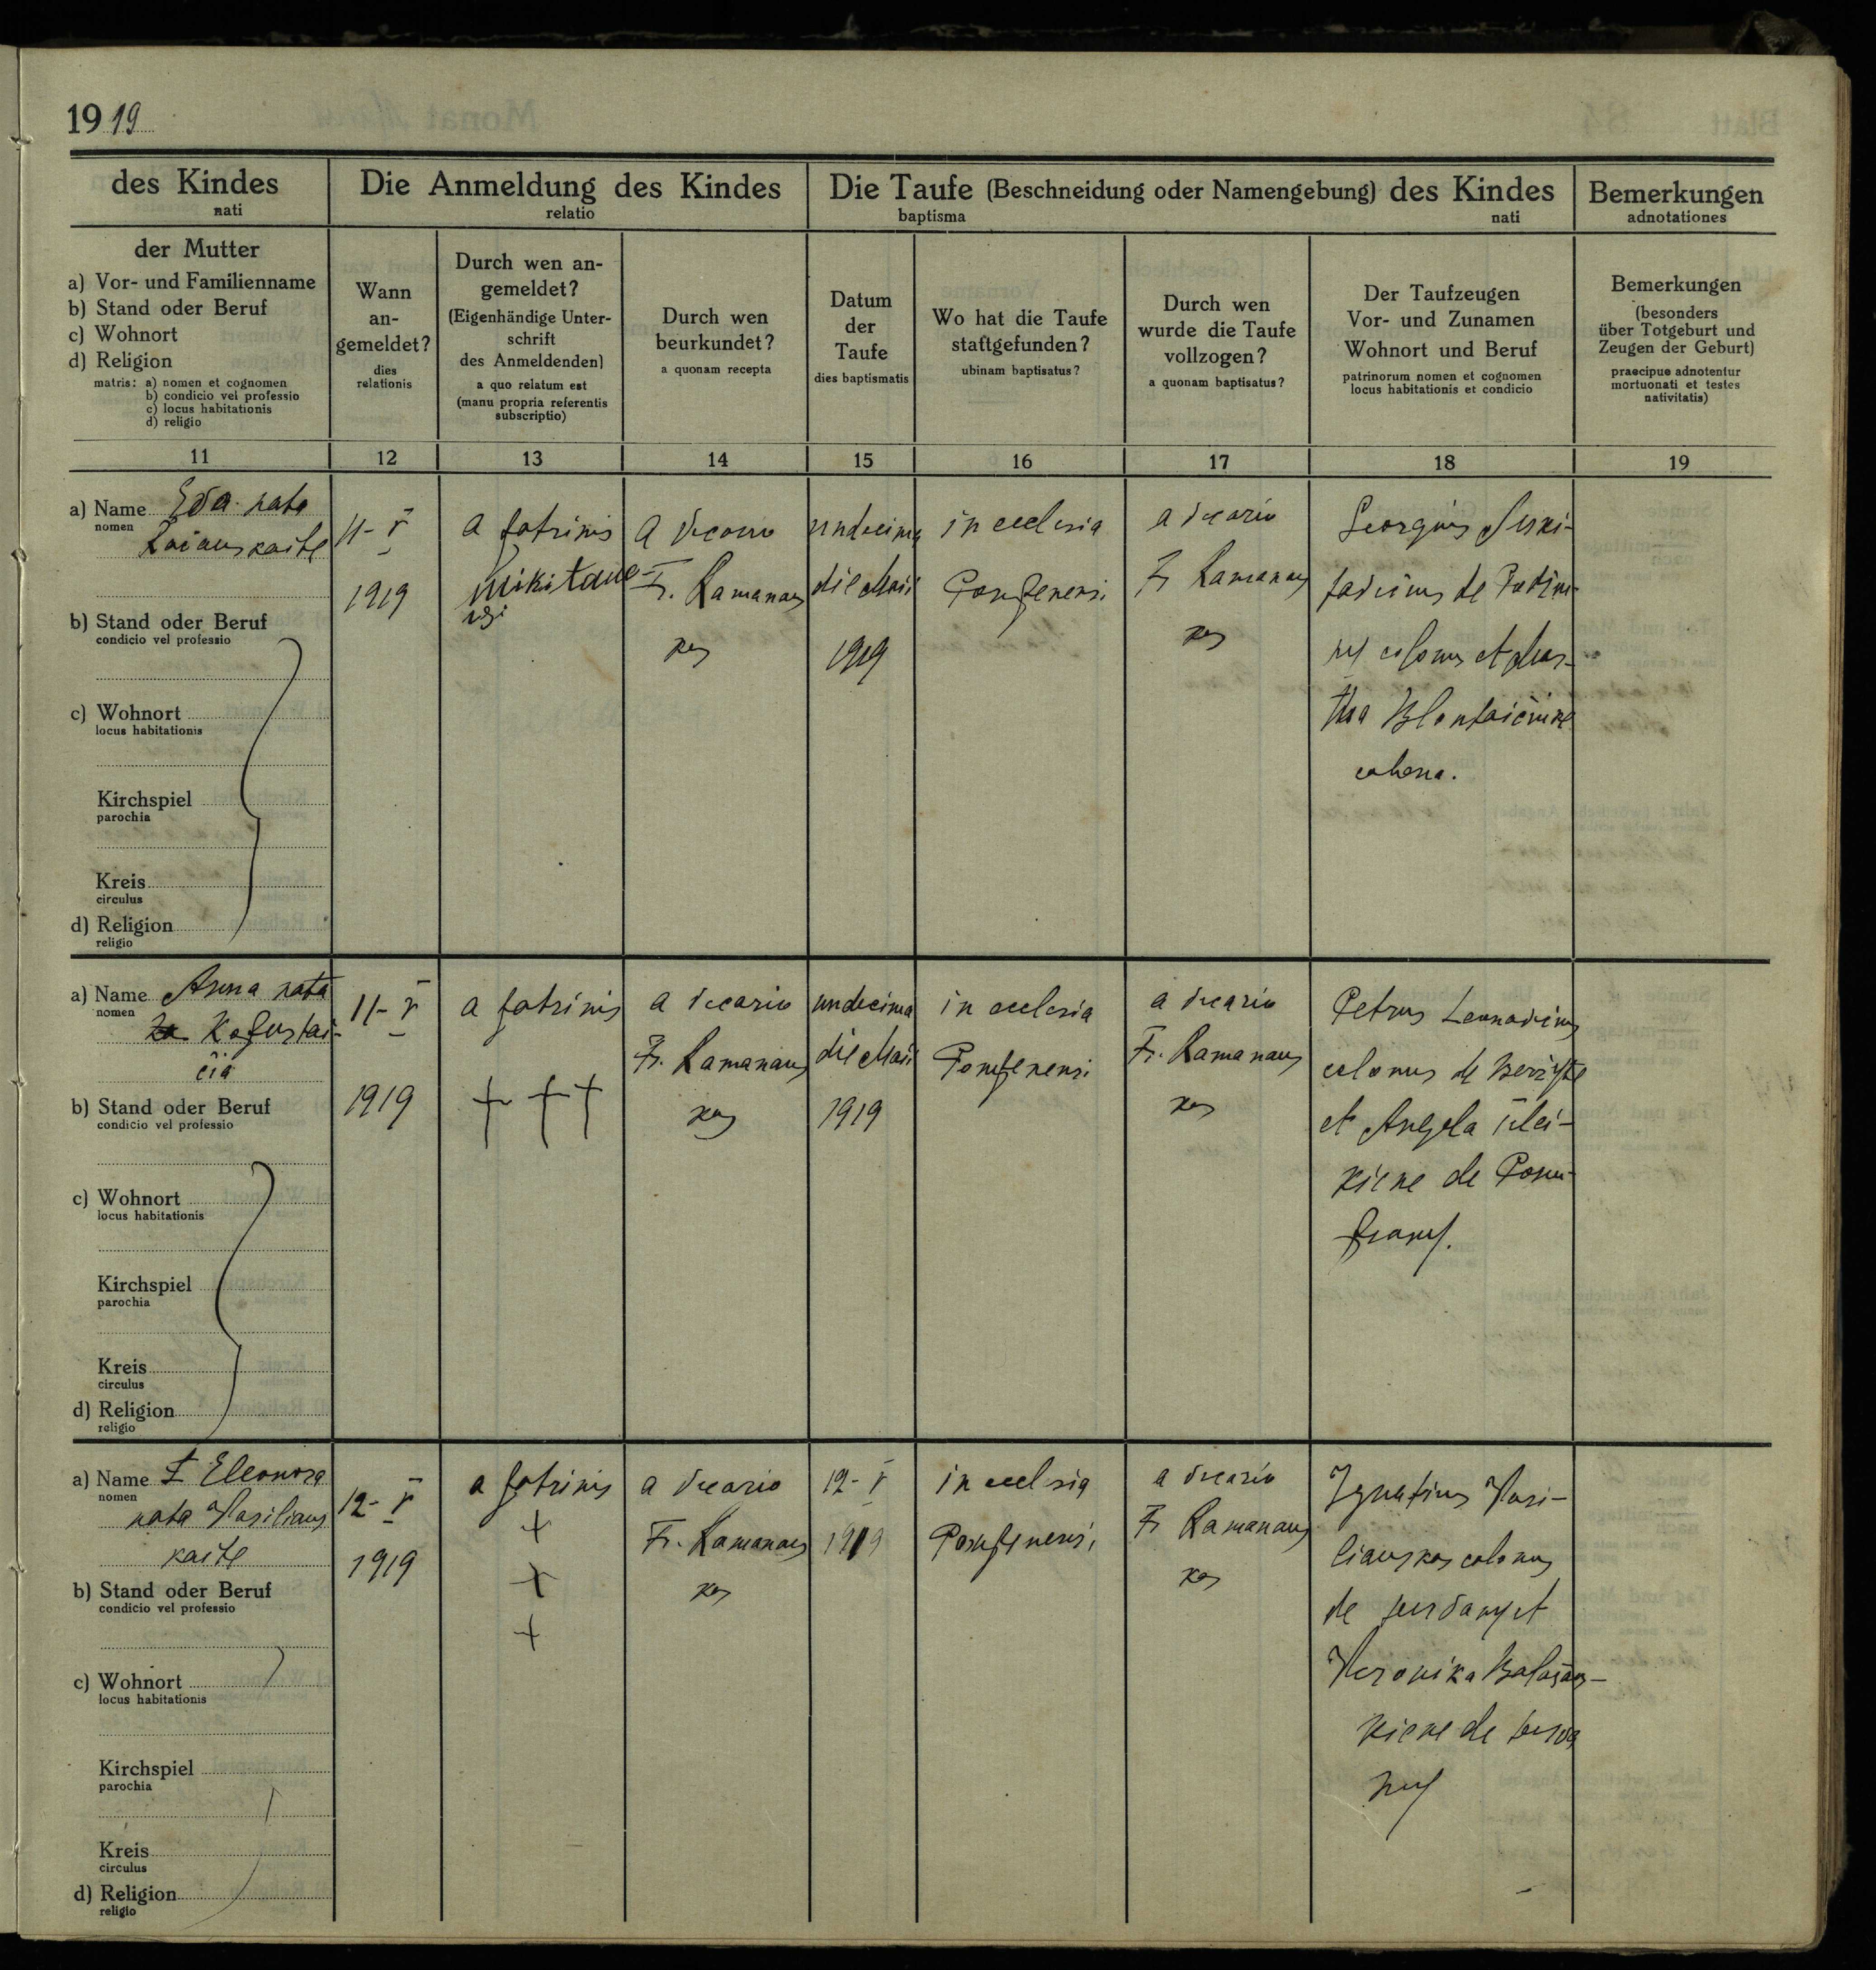 1919
des Kindes
nati
Die Anmeldung des Kindes
relatio
Die Taufe (Beschneidung oder Namengebung) des Kindes
baptisma nati
Bemerkungen
adnotationes
der Mutter
a) Vor- und Familienname
b) Stand oder Beruf
c) Wohnort
d) Religion
matris: a) nomen et cognomen
b) condicio vel professio
c) locus habitationis
d) religio
Wann
an-
gemeldet?
dies
relationis
Durch wen an-
gemeldet?
(Eigenhändige Unter-
schrift
des Anmeldenden)
a quo relatum est
(manu propria referentis
subscriptio)
Durch wen
beurkundet?
a quonam recepta
Datum
der
Taufe
dies baptismatis
Wo hat die Taufe
stattgefunden?
ubinam baptisatus?
Durch wen
wurde die Taufe
vollzogen?
a quonam baptisatus?
Der Taufzeugen
Vor- und Zunamen
Wohnort und Beruf
patrinorum nomen et cognomen
locus habitationis et condicio
Bemerkungen
(besonders
über Totgeburt und
Zeugen der Geburt)
praecipue adnotentur
mortuonati et testes
nativitatis)
11 12 13 14 15 16 17 18 19
a) Name Eva nata
nomen
b) Stand oder Beruf
condicio vel professio
c) Wohnort
locus habitationis
Kirchspiel
parochia
Kreis
circulus
d) Religion
religio
11-V
1919
a patrinis
F. Ramanaus
kas
undecima
die Maii
1919
in ecclesia
a vicario
F. Ramanaus
kas
Georgius
colonus et Mar-
tha
colona.
a) Name Anna nata
nomen
b) Stand oder Beruf
condicio vel professio
c) Wohnort
locus habitationis
Kirchspiel
parochia
Kreis
circulus
d) Religion
religio
11-V
1919
a patrinis
+ + +
a vicario
Fr. Ramanaus
kas
undecima
die Maii
1919
in ecclesia
a vicario
Fr. Ramanaus
kas
Petrus
colonus de
et Angela
kiene de
a) Name Eleonora
nomen
nata Vasiliaus
kaite
b) Stand oder Beruf
condicio vel professio
c) Wohnort
locus habitationis
Kirchspiel
parochia
Kreis
circulus
d) Religion
religio
12-V
1919
a patrinis
+
+
+
a vicario
Fr. Ramanaus
kas
12-V
1919
in ecclesia
a vicario
F. Ramanaus
kas
Ignatius Vasi-
liauskas colonus
de
Veronika
kiene de